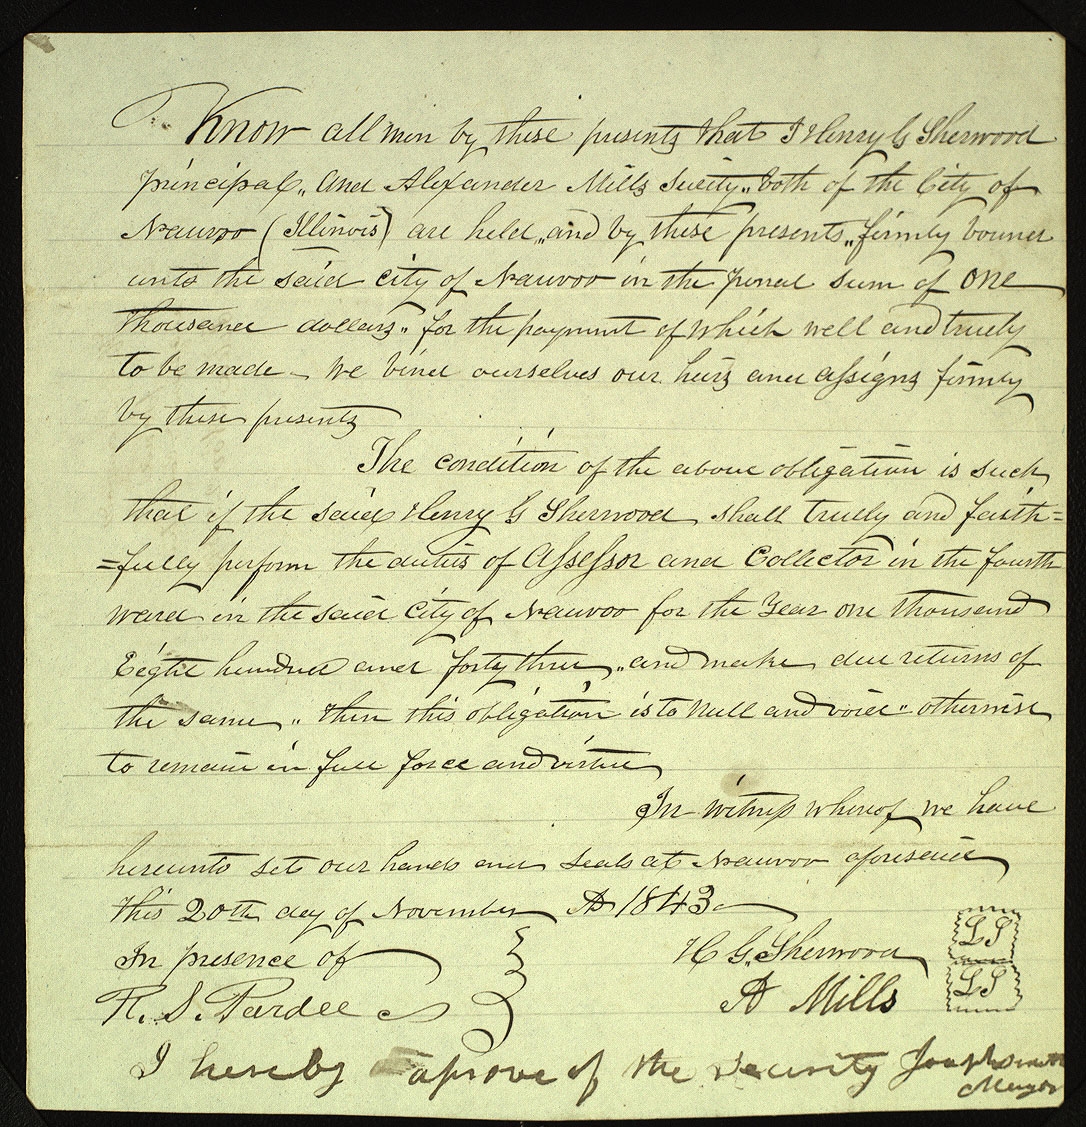 Know all men by these presents that I Henry G Sherwood
principal,, and Alexander Mills Surity,, both of the City of
Nauvoo (Illinois) are held,, and by these presents,, firmly bound
unto the said city of Nauvoo in the penal sum of one
thousand dollars,, for the payment of which well and truely
to be made - we bind ourselves our heirs and assigns firmly
by these presents
The condition of the above obligation is such
that if the said Henry G Sherwood shall truely and faith=
=fully perform the duties of Assessor and Collector in the fourth
ward in the said City of Nauvoo for the Year one thousand
Eight hundred and forty three,, and make due returns of
the same,, then this obligation is to Null and void,, otherwise
to remain in full force and virtue
In witness whereof we have
hereunto set our hands and seals at Nauvoo aforesaid
this 20th day of November AD 1843
In presence of
H G. Sherwood LS
R. S. Pardee
A Mills LS
I hereby aprove of the security Joseph Smith
Mayor